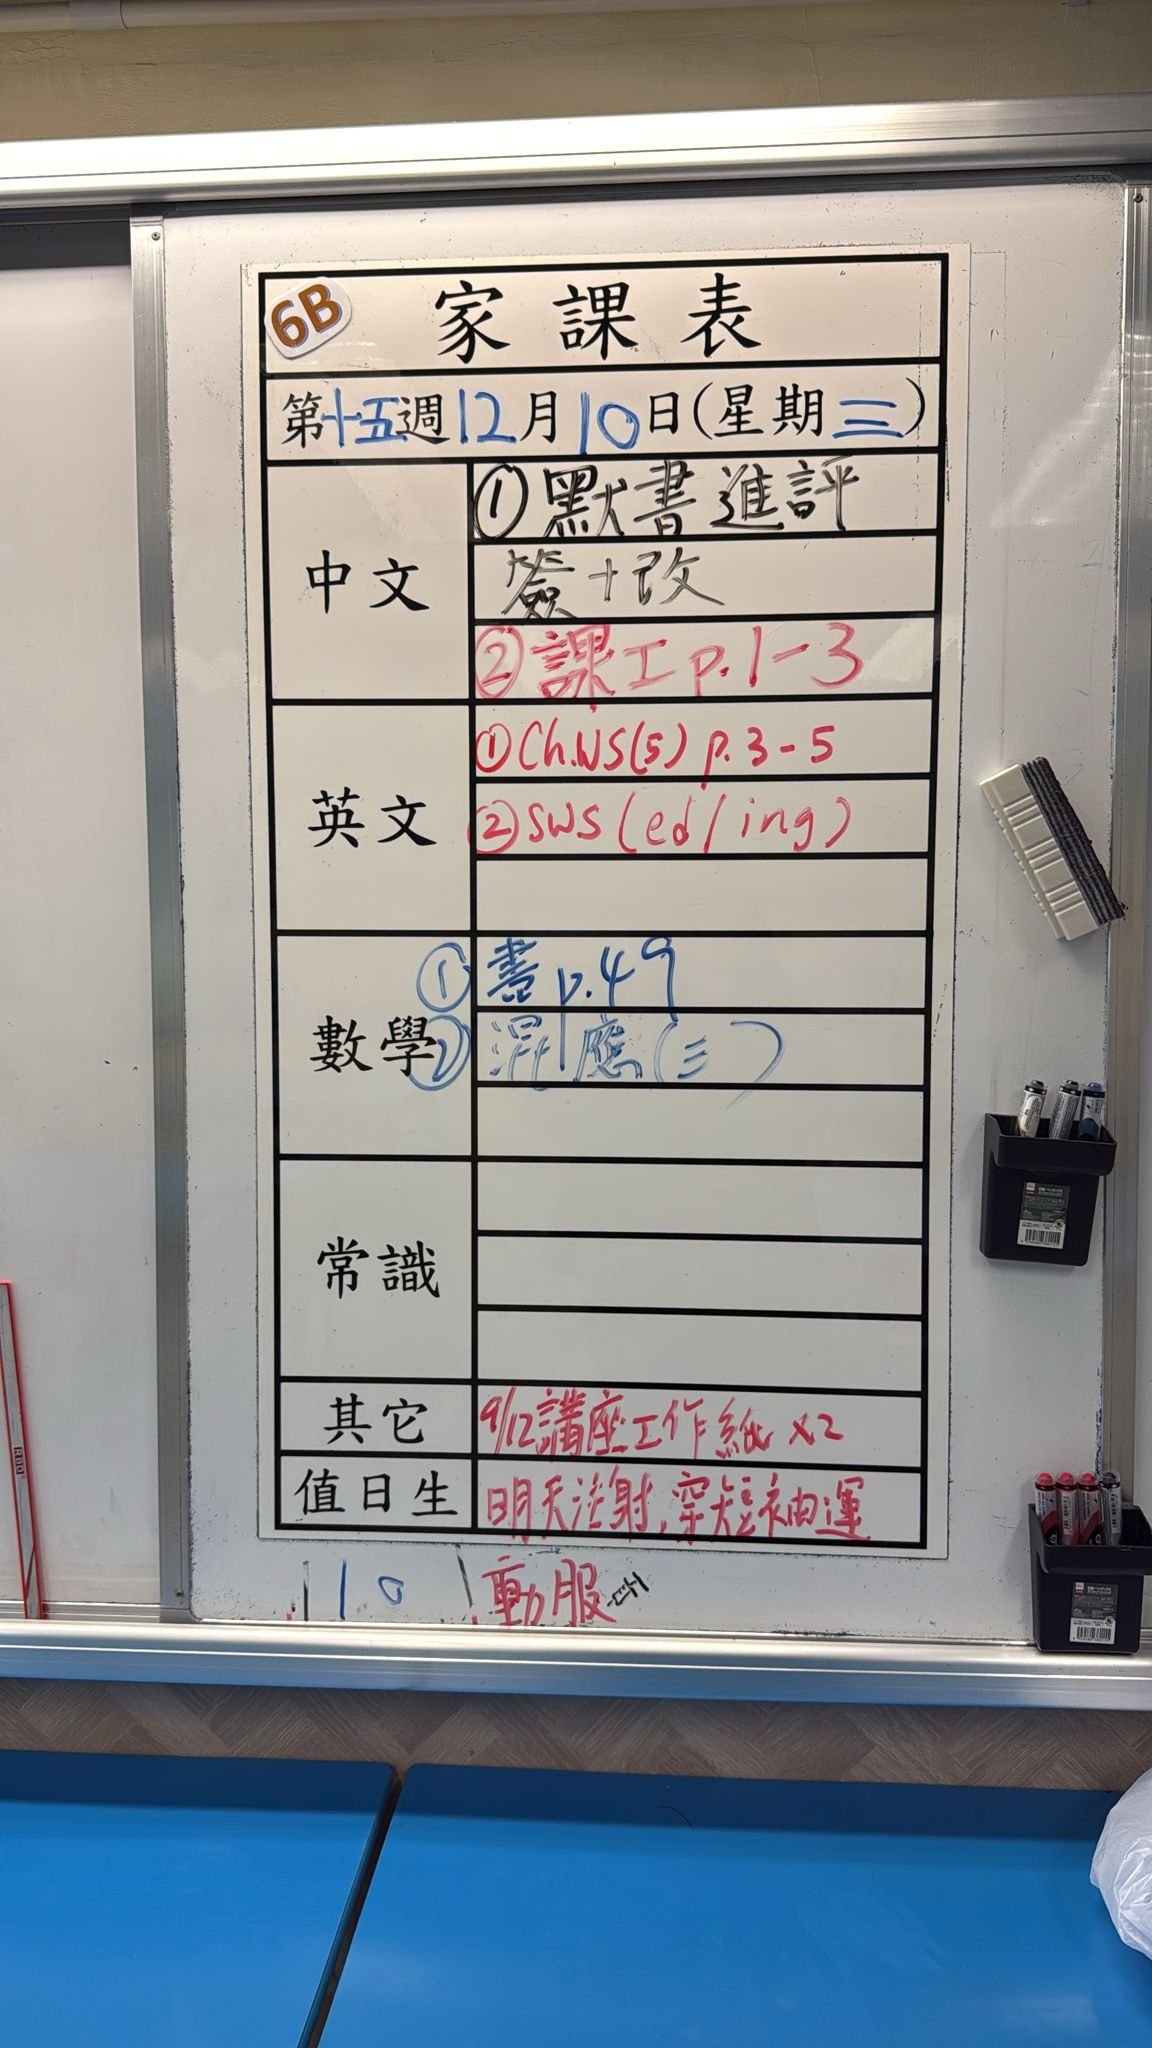 6B
家課表
第十五週12月10日(星期三)
中文
①默書進評
簽+改
②課工p.1-3
英文
①Ch.WS(5) p.3-5
②SWS(ed/ing)
數學
①書p.49
②混應(三)
常識
其它
9/12講座工作紙x2
值日生
明天注射,穿短袖運
動服
10
RBD